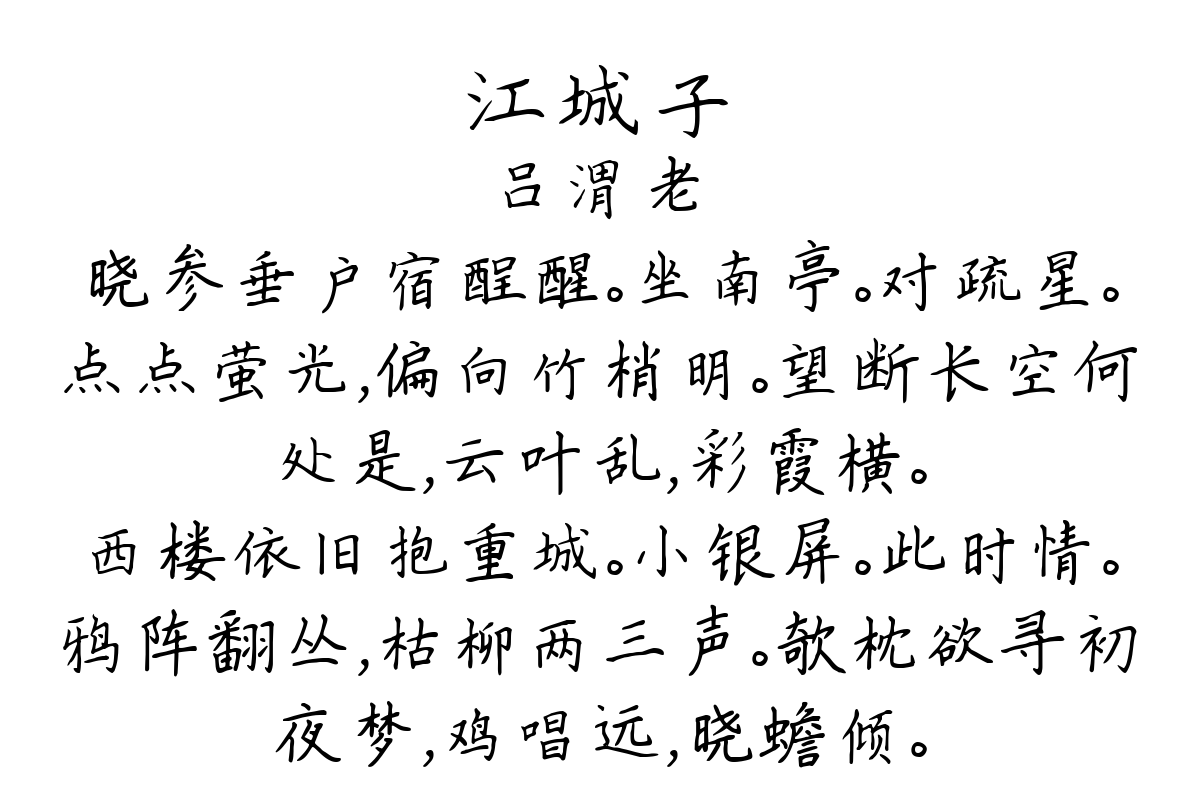 江城子
吕渭老
晓参垂户宿酲醒。坐南亭。对疏星。
点点萤光,偏向竹梢明。望断长空何
处是,云叶乱,彩霞横。
西楼依旧抱重城。小银屏。此时情。
鸦阵翻丛,枯柳两三声。欹枕欲寻初
夜梦,鸡唱远,晓蟾倾。